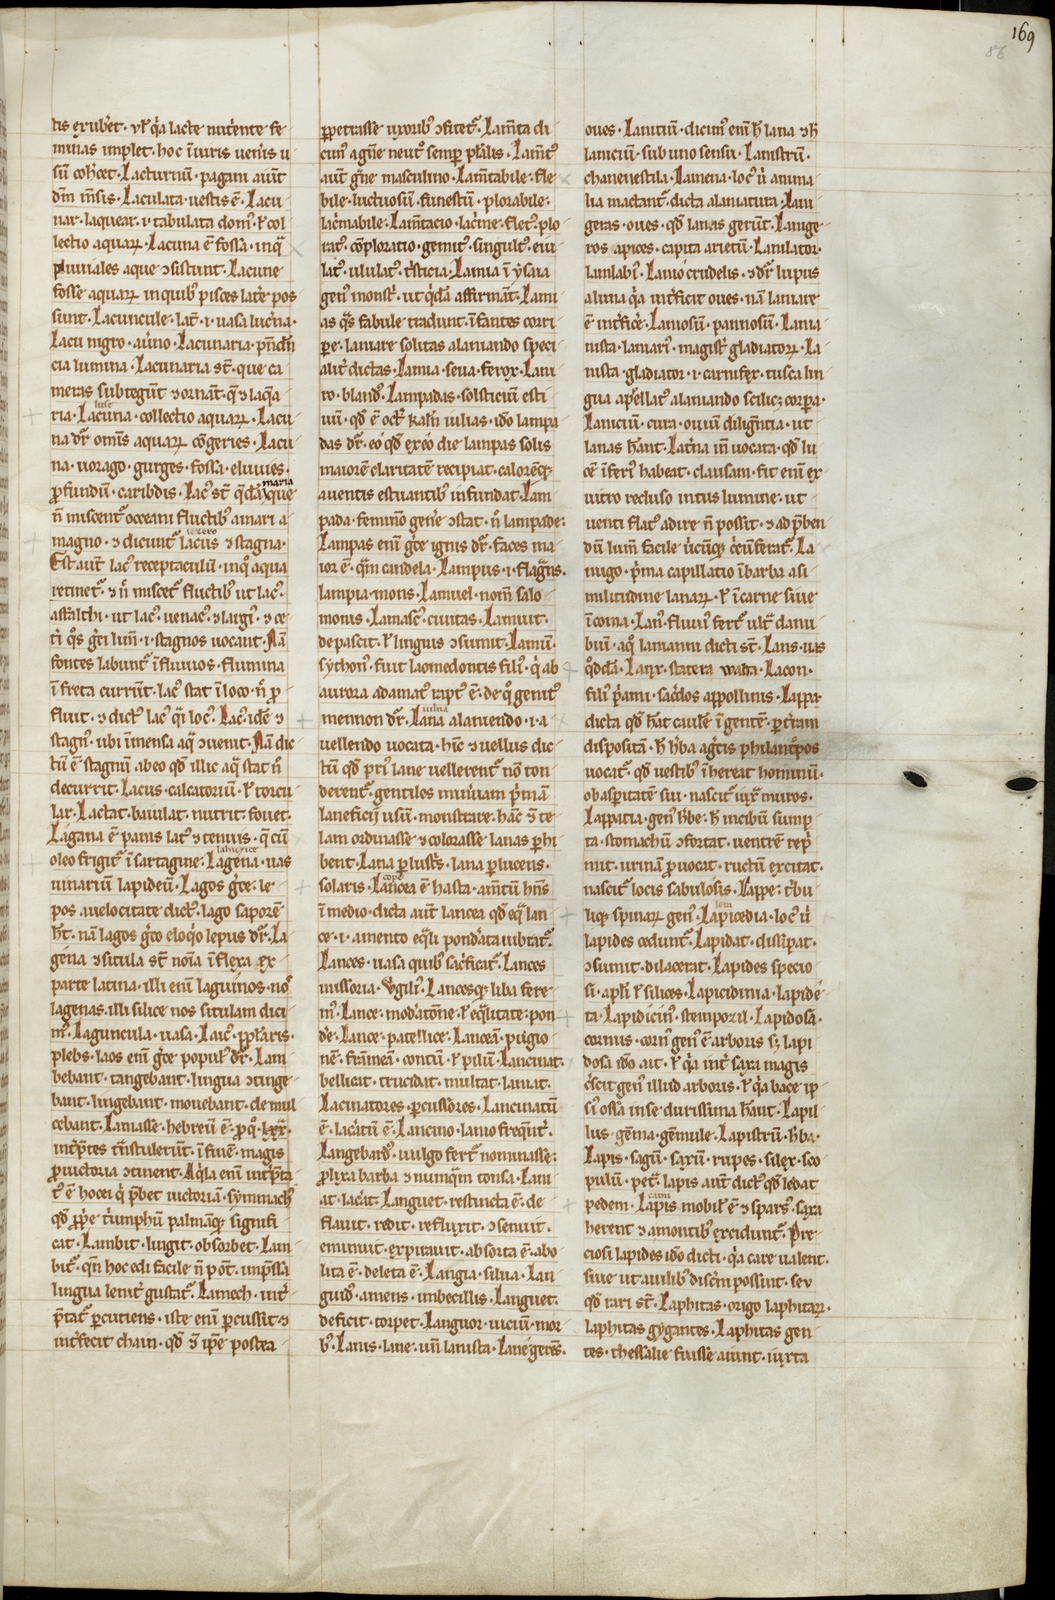 169
86
tis exub̄et. ul̓ q̄a lacte nut̓ente fe
minas implet. hoc ī iuris ueni̓s u
sū coh̓cet. Lacturnū. pagani aiūt
Laculata. uestis ē. Lacu
nar. laquear. i. tabulata dom̓. ł col
lectio aquaꝝ. Lacuna ē fossa. inq̄
pluuiales aque ɔsistunt. Lacune
fosse aquaꝝ inquib̓ pisces late̓ pos
sunt. Lacuncule. lat̄. i. uasa luc̓na.
Lacu nigro. au̓no. Lacunaria. pn̄dn̄
cia lumina. Lacunaria st̄. que ca
meras subtegūt ⁊ ornāt. q̄ ⁊ laq̄a
ria. Lacuna. collectio aquaꝝ. Lacu
na dr̄ omīs aquaꝝ cōgeries. Lacu
na. uorago. gurges. fossa. eluuies.
ꝓfundū. caribdis. Lac̓ st̄ q̄dā maria que
n̄ miscent̓ occeani fluctib̓ amari a
magno. ⁊ dicunt̓ lacus ⁊ stagna.
Est aūt lac̓ receptaculū. inq̄ aqua
retinet̓. ⁊ n̄ miscet̓ fluctib̓ ut lac̓.
asfalthi. ut lac̓. uenac̓. ⁊ largi̓. ⁊ ce
ti̓ q̄s gr̄ci lim̄. i. stagnos uocant. Nā
fontes labunt̓ ī fluuios. flumina
ī freta currūt. lac̓ stat ī loco. n̄ ꝓ
fluit. ⁊ dict̓ lac̓ q̄i loc̓. Lac̓. idē ⁊
stagn̓. ubi īmensa aq̄ ɔuenit. Nā dic
tū ē stagnū abeo qd̄ illic aq̄ stat n̄
decurrit. Lacus. calcatoriū. ł torcu
lar. Lactat. baiulat. nutrit. fouet.
Lagana ē panis lat̓ ⁊ tenuis. q̄ cū
oleo frigit̓ ī sartagine. Lagena. uas
uinariū lapideū. Lagos gr̄ce. le
pos auelocitate dict̓. lago saporē
h̄t. nā lagos gr̄ce eloq̄o lepus dr̄. La
gena ⁊ situla st̄ noīa ī flexa ex
parte latina. illi enī laguinos. no̓
lagenas. illi silice nos situlam dici
m̓. Laguncula. uasa. Laic̓. pp̄laris.
plebs. laos enī gr̄ce popul̓ dr̄. Lam
bebant. tangebant. lingua ɔtinge
bant. lingebant. mouebant. de mul
cebant. Lamasse. hebreū ē. ꝓ q̄. lxx.
int̓p̄tes t̄nstulerūt. ī finē. magis
ꝓ uictoria ɔtinent. Aq̄la enī int̓p̄ta
t̓ ē hoc ei qi p̄bet uictoriā. symmach̓
qd̄ ꝓp̄e t̓umphū palmāq; signifi
cat. Lambit. lingit. obsorbet. Lam
bit̓. qn̄ hoc edi facile n̄ pōt. imp̄ssa
lingua lenit̓ gustat̓. Lamech. int̓
p̄tat̓ p̄cutiens. iste enī p̄cussit ⁊
int̓fecit chain. qd̄ ⁊ ip̄e postea
ꝑpetrasse uxorib̓ ɔfitet̓. Lam̄ta di
cim̓ agn̄e neut̓. semp̄ pl̄alis. Lam̄t̓
aūt gn̄e masculino. Lam̄tabile. fle
bile. luctuosū. funestū. plorabile.
lac̓mabile. Lam̄tacio. lac̓me. flet̓. plo
rat̓. cōploratio. gemit̓. singult̓. eiu
lat̓. ululat̓. t̓sticia. Lamia ī ysaia
gen̓ monst̓. ut q̄dā affirmāt. Lami
as q̄s fabule tradunt. īfantes corri
pe̓. laniare solitas alaniando speci
alit̓ dictas. Lamia. seua. ferox. Lani
ro. bland̓. Lampadas. solsticiū esti
uū. qd̄ ē oct̓ kal̄n iulias. ido̓ lampa
das dr̄. eo̓ qd̄ exeo̓ die lampas solis
maiorē claritatē recipiat. calorēq;
auentis estuantib̓ infundat. Lam
pada. feminīo gene̓ ɔstat. n̄ lampade.
Lampas enī gr̄ce ignis dr̄. faces ma
ior ē. qm̄ candela. Lampus. i. flagr̄ns.
lampia. mons. Lamuel. nom̄ salo
monis. Lamasc̓. ciuitas. Lamiut.
depascit. ł linguis ɔsumit. Lamū.
sychon̓. fuit laomedontis fili̓. qi ab
aurora adamat̓ rapt̓ ē. de q̄ genit̓
mennon dr̄. Lana alaniendo. i. a
uellendo uocata. hīc ⁊ uellus dic
tū qd̄ pri̓ lane uellerent̓. nō ton
derent̓. gentiles mineruam p̄mā
lanificij usū. monstrare. hāc ⁊ te
lam ordinasse ⁊ colorasse lanas phi
bent. Lana p̄lustr̄s. lana p̄lucens.
solaris. Lancea ē hasta. am̄tū hn̄s
ī medio. dicta aūt lancea qd̄ eq̄ lan
ce. i. amento eq̄li pond̓ata uibrat̓.
Lances. uasa quib̓ sac̓ficat̓. Lances
missoria. Virgili̓. Lancesq; liba fere
m̓. Lance. mod̓atōne. ł eq̄litate. pon
de̓. Lance. patellice. Lanceā. pugio
nē. frāmeā. contū. ł pilū. Lancinat.
bellicat. trucidat. multat. laniat.
Lacinatores. p̄cussores. Lancinatū
ē. lac̓atū ē. Lancino. lanio freq̄nt̓.
Langebard̓. uulgo fert̓ nominasse.
ꝓlixa barba ⁊ numq̄m tonsa. Lani
at. lac̓at. Languet. restincta ē. de
flauit. redit. refluxit. ɔsenuit.
eminuit. expirauit. absorta ē. abo
lita ē. deleta ē. Langia. silua. Lan
guid̓. amens. imbecillis. Languet.
deficit. torpet. Languor. uiciū. mor
b̓. Lanis. lane. un̄ lanista. Lane geres.
oues. Laniciū. dicim̓ enī h̄ lana ⁊ h̄
laniciū. sub uno sensu. Lanistrū.
chanenestila. Laniena. loc̓ ū̓ anima
lia mactant̓. dicta alaniatura. Lani
geras. oues. qd̄ lanas gerūt. Lanige
ros apices. capita arietū. Lanilator.
lanlab̓. Lanio̓ crudelis. ⁊ dr̄ lupus
alania q̄a int̓ficit oues. nā laniare
ē int̓fice̓. Laniosū. pannosū. Lania
nista. laniari̓. magist̓ gladiatoꝝ. La
nista. gladiator. i. carnifex. tusca lin
gua ap̄ellat̓ alaniando scilic; corpa̓.
Laniciū. cura. ouiū dilign̄tia. ut
lanas h̄ant. Lat̓na in̄ uocata. qd̄ lu
cē īferi̓ habeat. clausam. fit enī ex
uitro recluso intus lumine. ut
uenti flat̓ adire n̄ possit. ⁊ ad p̄ben
dū lum̄ facile ū̓cūq; c̓cūferat̓. La
nugo. p̄ma capillatio ībarba asi
militudine lanaꝝ. ł ī carne siue
ī coma. Lan̓. fluui̓ fert̓ ult̓ danu
biū. aq̄ lamanni dicti st̄. Lans. uas
q̄ddā. Lanx. statera. wata. Lacon.
fili̓ p̄ami. sac̓dos appollinis. Lappa.
dicta qd̄ h̄at caulē ī gentē. p̄ t̓ram
dispositā. h̄ h̓ba agr̓tis philant̓pos
uocat̓. qd̄ uestib̓ īhereat hominū.
ob asp̓itatē sui. nascit̓ iux̓ muros.
Lappatia. gen̓ h̓be. h̄ incibū sump
ta. stomachū ɔfortat. uentrē repri
mit. urinā ꝓuocat. ructū excitat.
nascit̓ locis sabulosis. Lappe. t̓bu
liq; spinaꝝ gen̓. Lapicedia. loc̓ ū̓
lapides cedunt̓. Lapidat. dissipat.
ɔsumit. dilacerat. Lapides specio
si. apl̄i ł silices. Lapicidinia. lapide̓
ta. Lapidicin̓. stemporil. Lapidosa.
cornus. corn̓ gen̓ ē arboris s; lapi
dosa ido̓ ait. ł q̄a int̓ saxa magis
c̓scit gen̓ illud arboris. ł q̄a bace ip
si̓ ossa inse durissima h̄ant. Lapil
lus. gēma. gēmule. Lapistrū. h̓ba.
Lapis. sagū. saxū. rupes. silex. sco
pulū. pet̓. lapis aūt dict̓ qd̄ ledat
pedem. Lapis mobil̓ ē ⁊ spars̓. saxa
herent ⁊ amontib̓ exciduntur̓. Pre
ciosi lapides ido̓ dicti. q̄a care ualent.
siue ut auilib̓ disc̓ni possint. seu
qd̄ rari st̄. Laphitas. origo laphitaꝝ.
laphitas gygantes. Laphitas gen
tes. thessalie fuisse aiunt. iuxta